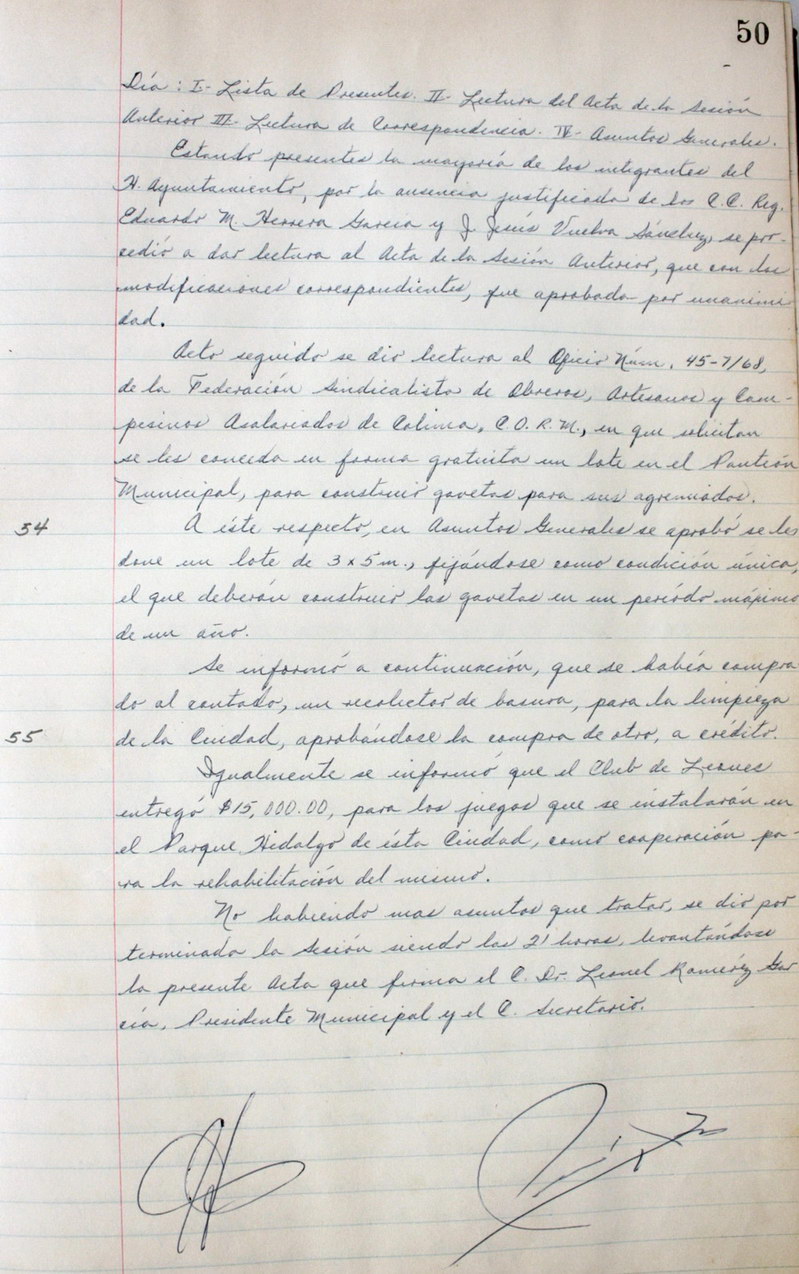 50
Día: I- Lista de Presentes. II- Lectura del Acta de la Sesión
Anterior III- Lectura de Correspondencia. IV- Asuntos Generales.
Estando presentes la mayoría de los integrantes del
H. Ayuntamiento, por la ausencia justificada de los C.C. Reg.
Eduardo M. Herrera García y J. Jesús Vuelva Sánchez, se pro-
cedió a dar lectura al Acta de la Sesión Anterior, que con las
modificaciones correspondientes, fue aprobada por unanimi
dad.
Acto seguido se dio lectura al Oficio Núm. 45-7/68,
de la Federación Sindicalista de Obreros, Artesanos y Cam-
pesinos Asalariados de Colima, C.O.R.M., en que solicitan
se les conceda en forma gratuita un lote en el Panteón
Municipal, para construir gavetas para sus agremiados.
54
A éste respecto, en Asuntos Generales se aprobó se les
done un lote de 3 x 5 m., fijándose como condición única,
el que deberán construir las gavetas en un período máximo
de un año.
Se informó a continuación, que se había compra
do al contado, un recolector de basura, para la limpieza
55
de la Ciudad, aprobándose la compra de otro, a crédito.
Igualmente se informó que el Club de Leones
entregó $15,000.00, para los juegos que se instalarán en
el Parque Hidalgo de ésta Ciudad, como cooperación pa-
ra la rehabilitación del mismo.
No habiendo mas asuntos que tratar, se dio por
terminada la Sesión siendo las 21 horas, levantándose
la presente Acta que firma el C. Dr. Leonel Ramírez Gar
cía, Presidente Municipal y el C. Secretario.